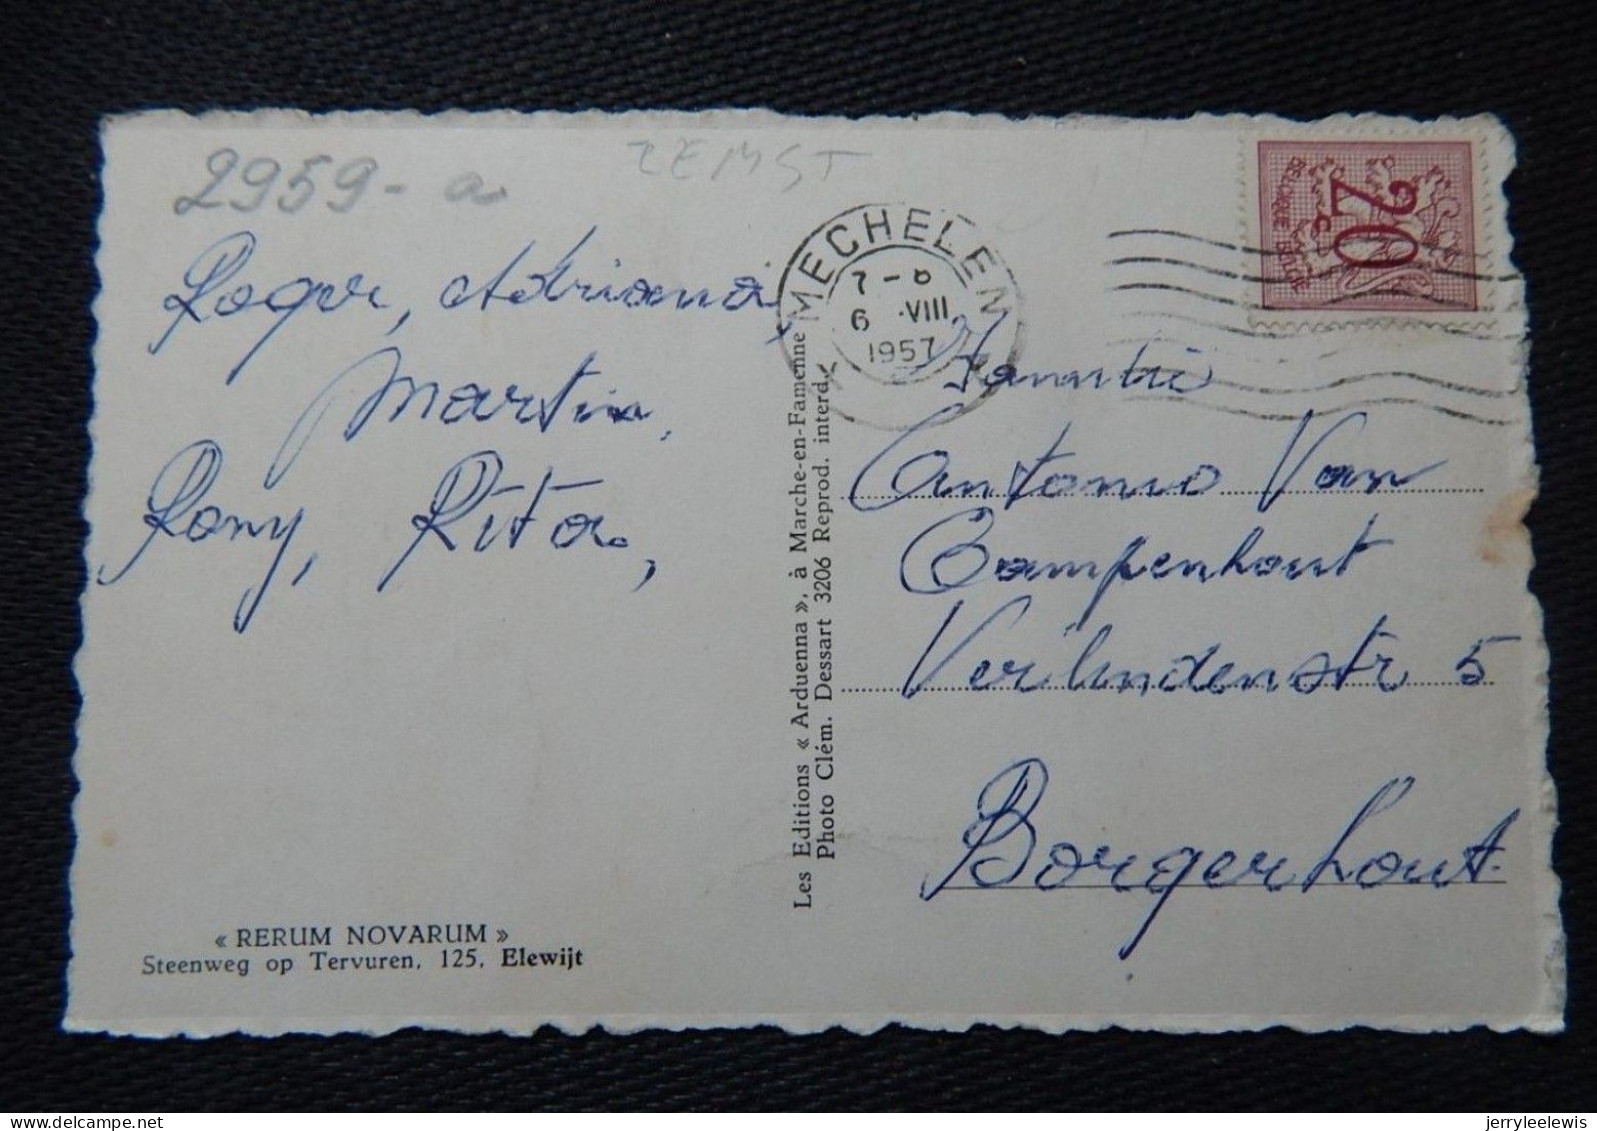 2959-a
ZEMST
Roger, Adriana,
Martin,
Rony, Rita,
« RERUM NOVARUM »
Steenweg op Tervuren, 125, Elewijt
Les Editions « Arduenna », à Marche-en-Famenne
Photo Clém. Dessart 3206 Reprod. interd.
MECHELEN
7-8
6 VIII
1957
BELGIQUE BELGIE
20 c
Familie
Antonio Van
Campenhout
Verlindenstr 5
Borgerhout.
jerryleelewis
delcampe.net